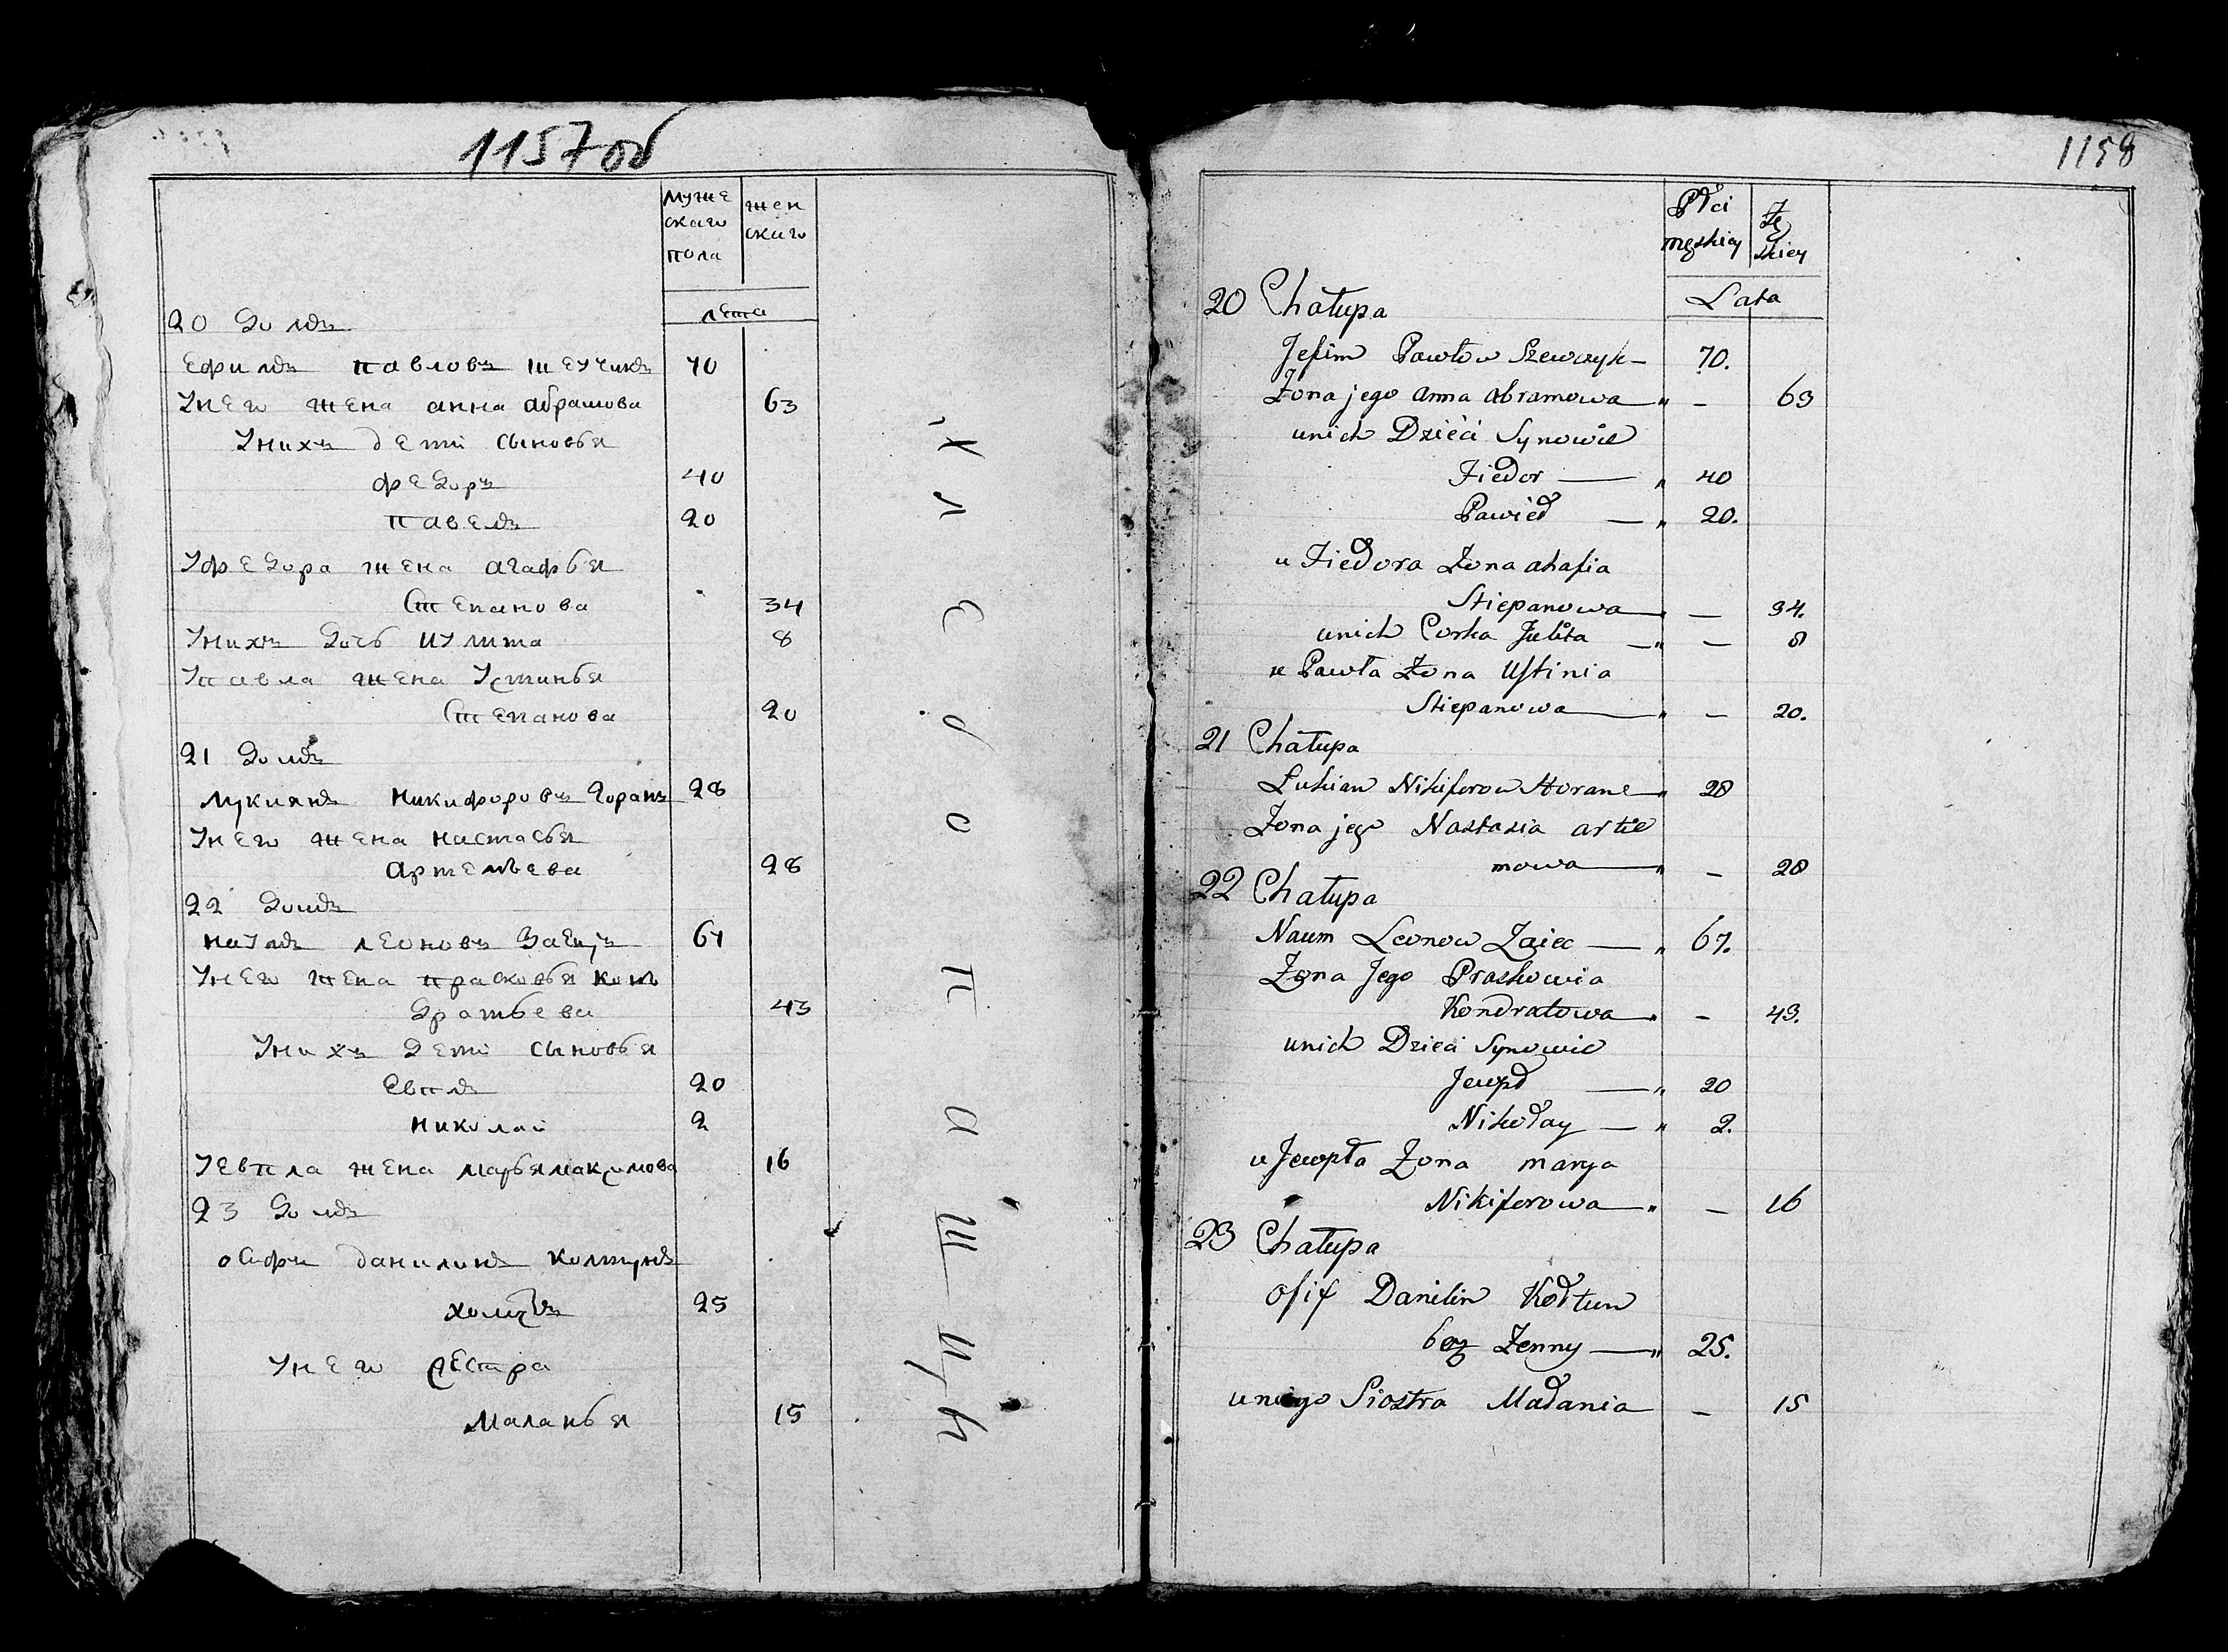 1157об
муже
скаго
пола
жен
скаго
лета
20 домъ
Ефимъ павловъ шеучикъ 70
Унего жена анна абрамова 63
Унихъ дети сыновья
федоръ 40
павелъ 20
Уфедора жена агафья
Степанова 34
Унихъ дочь иулита 8
Упавла жена Устинья
Степанова 20
21 домъ
лукиянъ никифоровъ горанъ 28
Унего жена настасья
артемьева 28
22 домъ
наумъ леоновъ заецъ 67
Унего жена прасковья кон
дратьева 43
Унихъ дети сыновья
Евплъ 20
николай 2
Уевпла жена марья максимова 16
23 домъ
осифъ данилинъ колтунъ
холостъ 25
Унего сестра
маланья 15
К л е р о п а ш ц ы
1158
Płci
męskiey
Żę
skiey
Lata
20 Chałupa
Jefim Pawłow Szewczyk — 70.
Żona jego anna abramowa — " — 63
unich Dzieci Synowie
Fiedor — " 40
Pawieł — " 20.
u Fiedora Żona ahafia
Stiepanowa — " — 34.
unich Corka Julita — " — 8
u Pawła Żona Ustinia
Stiepanowa — " — 20.
21 Chałupa
Łukian Nikiforow Horane " 28
Żona jego Nastasia artie
mowa — " — 28
22 Chałupa
Naum Leonow Zaiec — " 67.
Żona Jego Praskowia
Kondratowa — " — 43.
unich Dzieci Synowie
Jewpł — " 20
Nikołay — " 2.
u Jewpła Żona marya
Nikiforowa — " — 16
23 Chałupa
Osif Danilin Kołtun
bez Żenny — " 25.
uniego Siostra Małania — 15